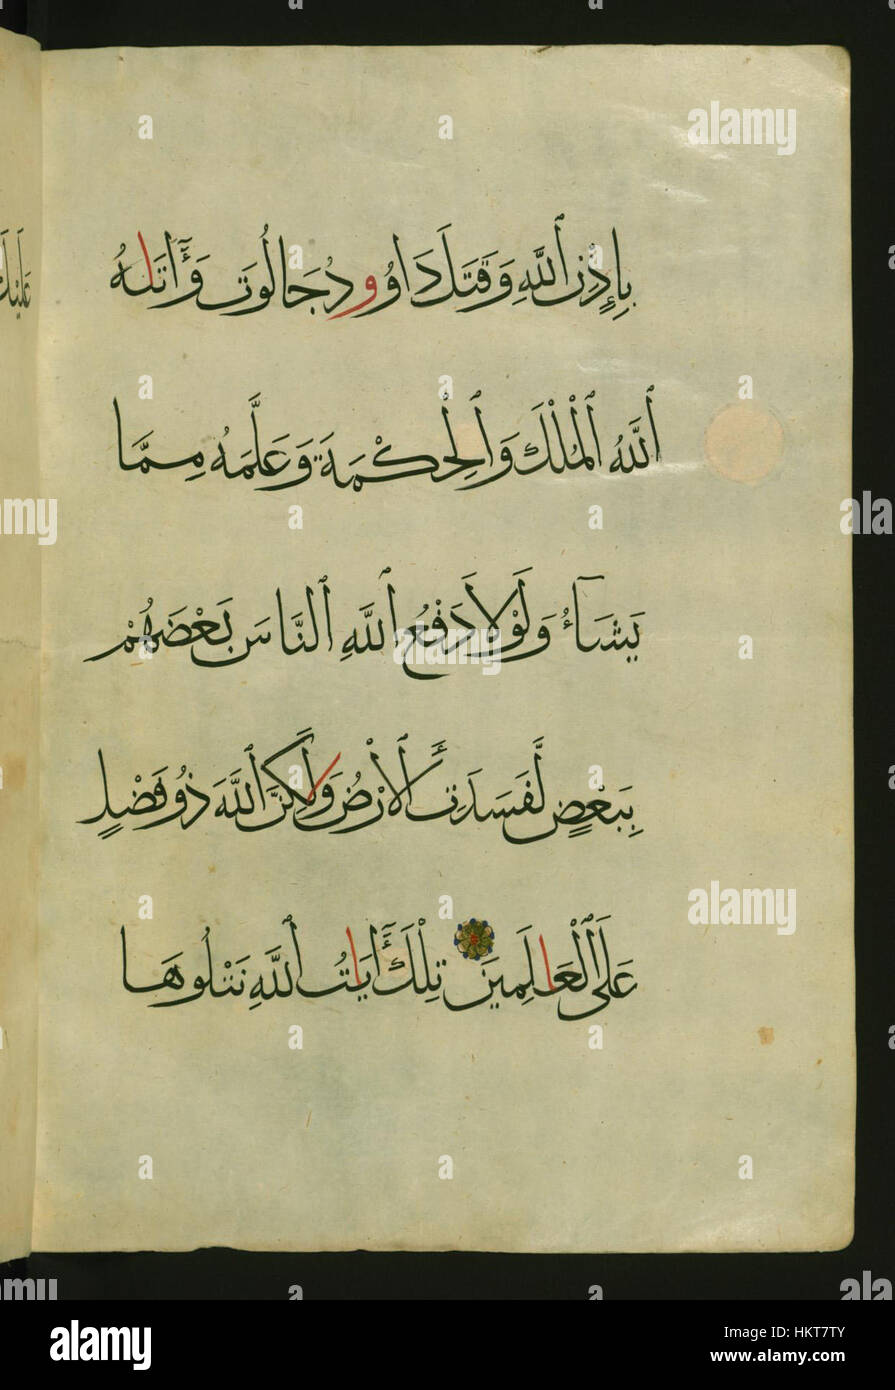 بِإِذْنِ ٱللَّهِ وَقَتَلَ دَاوُودُ جَالُوتَ وَءَاتَاهُ
ٱللَّهُ ٱلْمُلْكَ وَٱلْحِكْمَةَ وَعَلَّمَهُ مِمَّا
يَشَآءُ وَلَوْلَا دَفْعُ ٱللَّهِ ٱلنَّاسَ بَعْضَهُمْ
بِبَعْضٍ لَّفَسَدَتِ ٱلْأَرْضُ وَلَاكِنَّ ٱللَّهَ ذُو فَضْلٍ
عَلَى ٱلْعَالَمِينَ تِلْكَ ءَايَاتُ ٱللَّهِ نَتْلُوهَا
عَلَيْكَ
alamy
alamy stock photo
HKT7TY
www.alamy.com